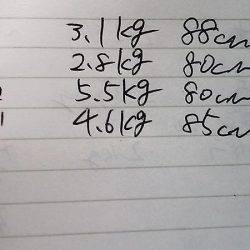 3.1kg 88cm
2.8kg 80cm
5.5kg 80cm
4.6kg 85cm